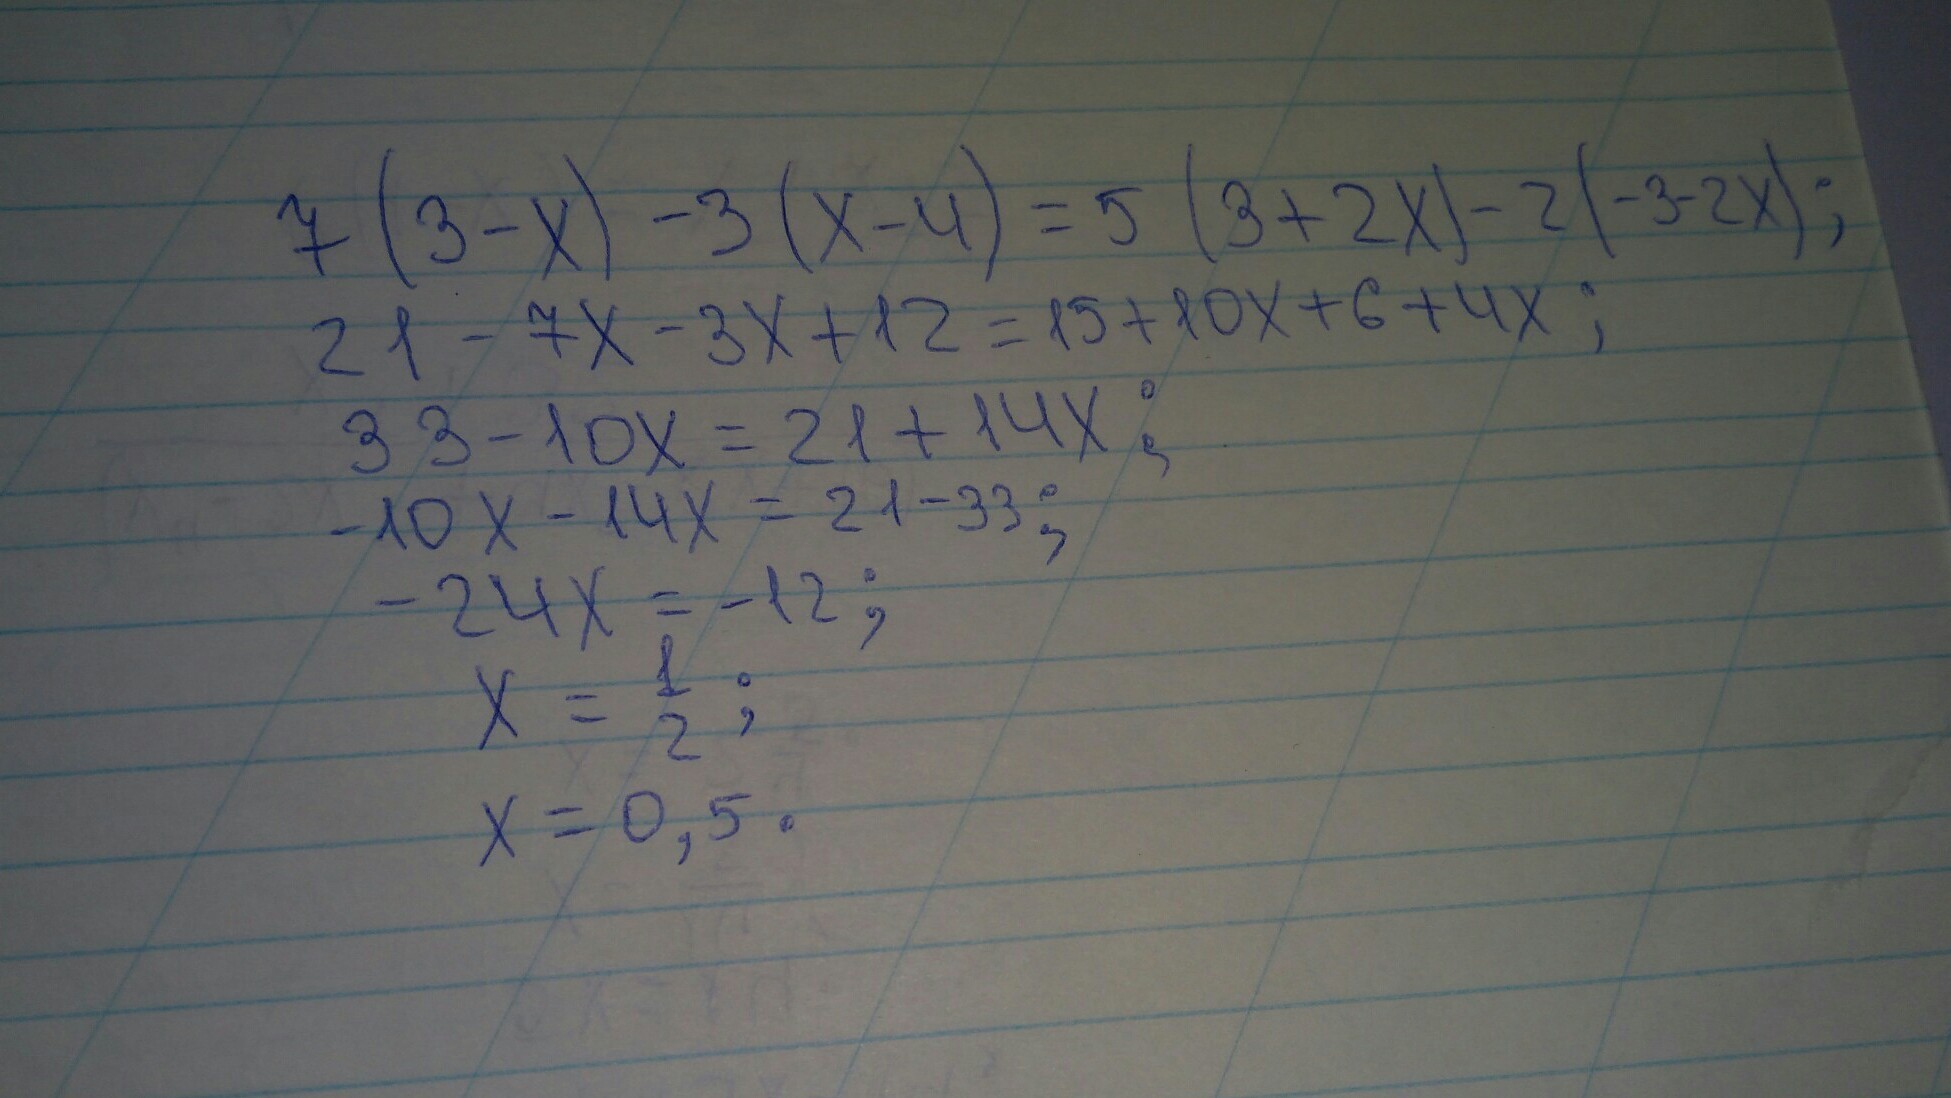 7(3-x)-3(x-4)=5(3+2x)-2(-3-2x);
21-7x-3x+12=15+10x+6+4x;
33-10x=21+14x;
-10x-14x=21-33;
-24x=-12;
x=1/2;
x=0,5.